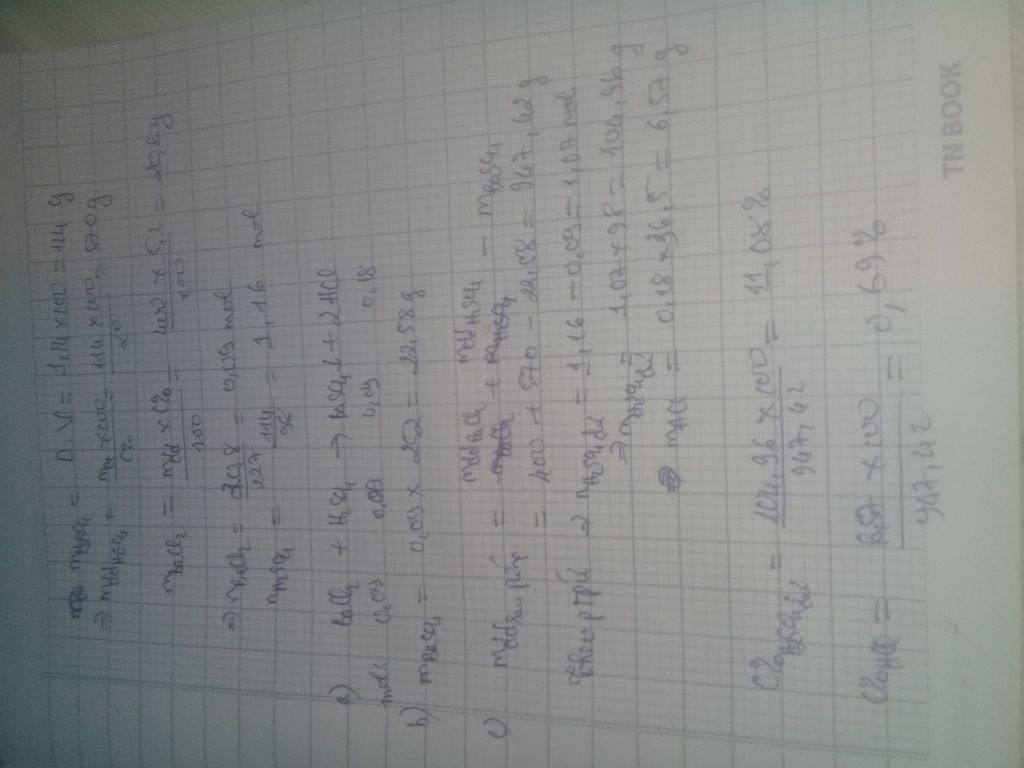 m H2SO4 = D.V = 1,14 × 100 = 114 g
=> mddH2SO4 = mct × 100 / C% = 114 × 100 / 20 = 570 g
mBaCl2 = mdd × C% / 100 = 400 × 5,2 / 100 = 20,8 g
=> nBaCl2 = 20,8 / 227 = 0,09 mol
nH2SO4 = 114 / 98 = 1,16 mol
a) BaCl2 + H2SO4 → BaSO4↓ + 2HCl
mol: 0,09 0,09 0,09 0,18
b) mBaSO4 = 0,09 × 252 = 22,58 g
c) mddsau pứ = mddBaCl2 + mddH2SO4 - mBaSO4
= 400 + 570 - 22,58 = 947,42 g
Theo ptpứ 2 nH2SO4 dư = 1,16 - 0,09 = 1,07 mol
=> mH2SO4 dư = 1,07 × 98 = 104,96 g
mHCl = 0,18 × 36,5 = 6,57 g
C% H2SO4 dư = 104,96 × 100 / 947,42 = 11,08%
C% HCl = 6,57 × 100 / 947,42 = 0,69%
TN BOOK